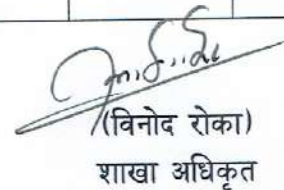 (विनोद रोका)
शाखा अधिकृत